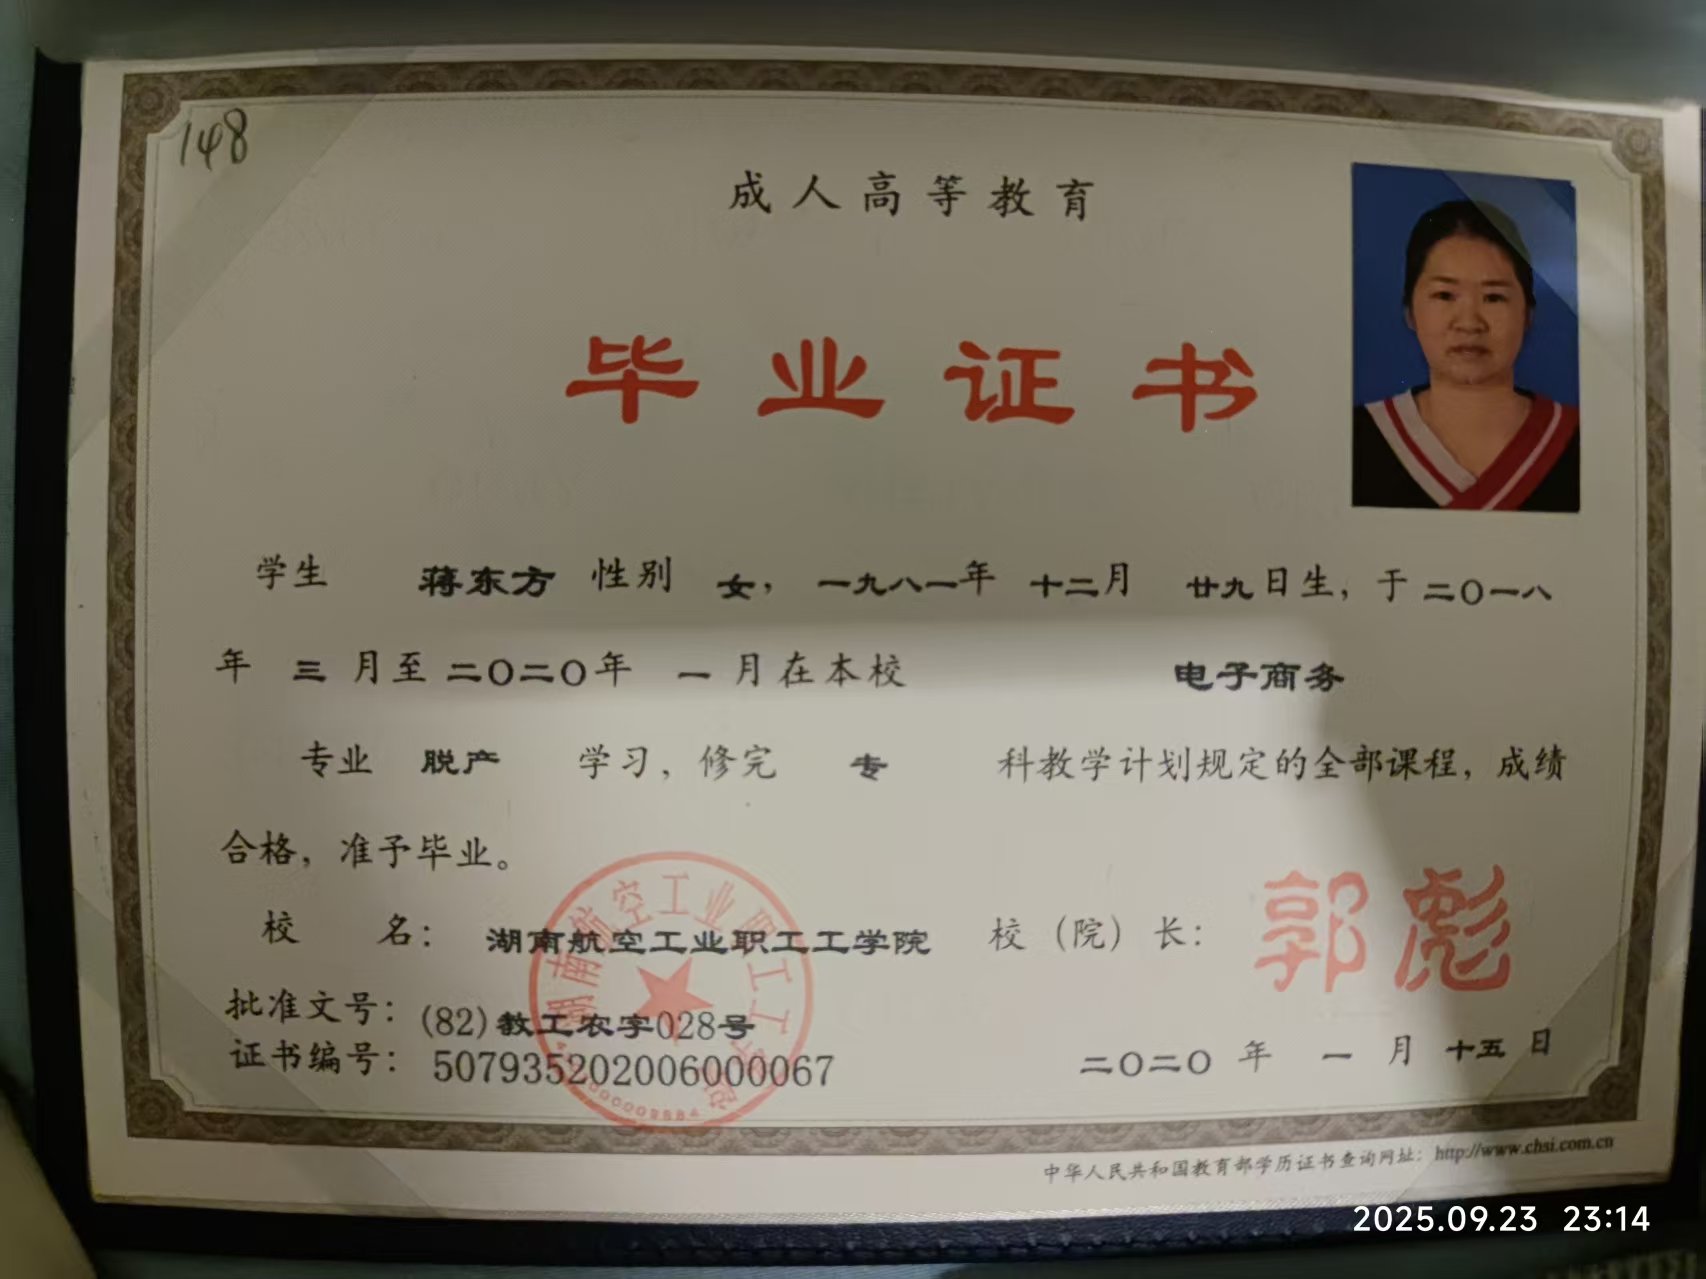 148
成人高等教育
毕业证书
学生 蒋东方 性别 女，一九八一年 十二月 廿九日生，于二〇一八
年 三 月至 二〇二〇年 一 月在本校 电子商务
专业 脱产 学习，修完 专 科教学计划规定的全部课程，成绩
合格，准予毕业。
校 名：湖南航空工业职工工学院 校（院）长：郭彪
批准文号：(82)教工农字028号
证书编号：507935202006000067
二〇二〇 年 一 月 十五 日
中华人民共和国教育部学历证书查询网址：http://www.chsi.com.cn
2025.09.23 23:14